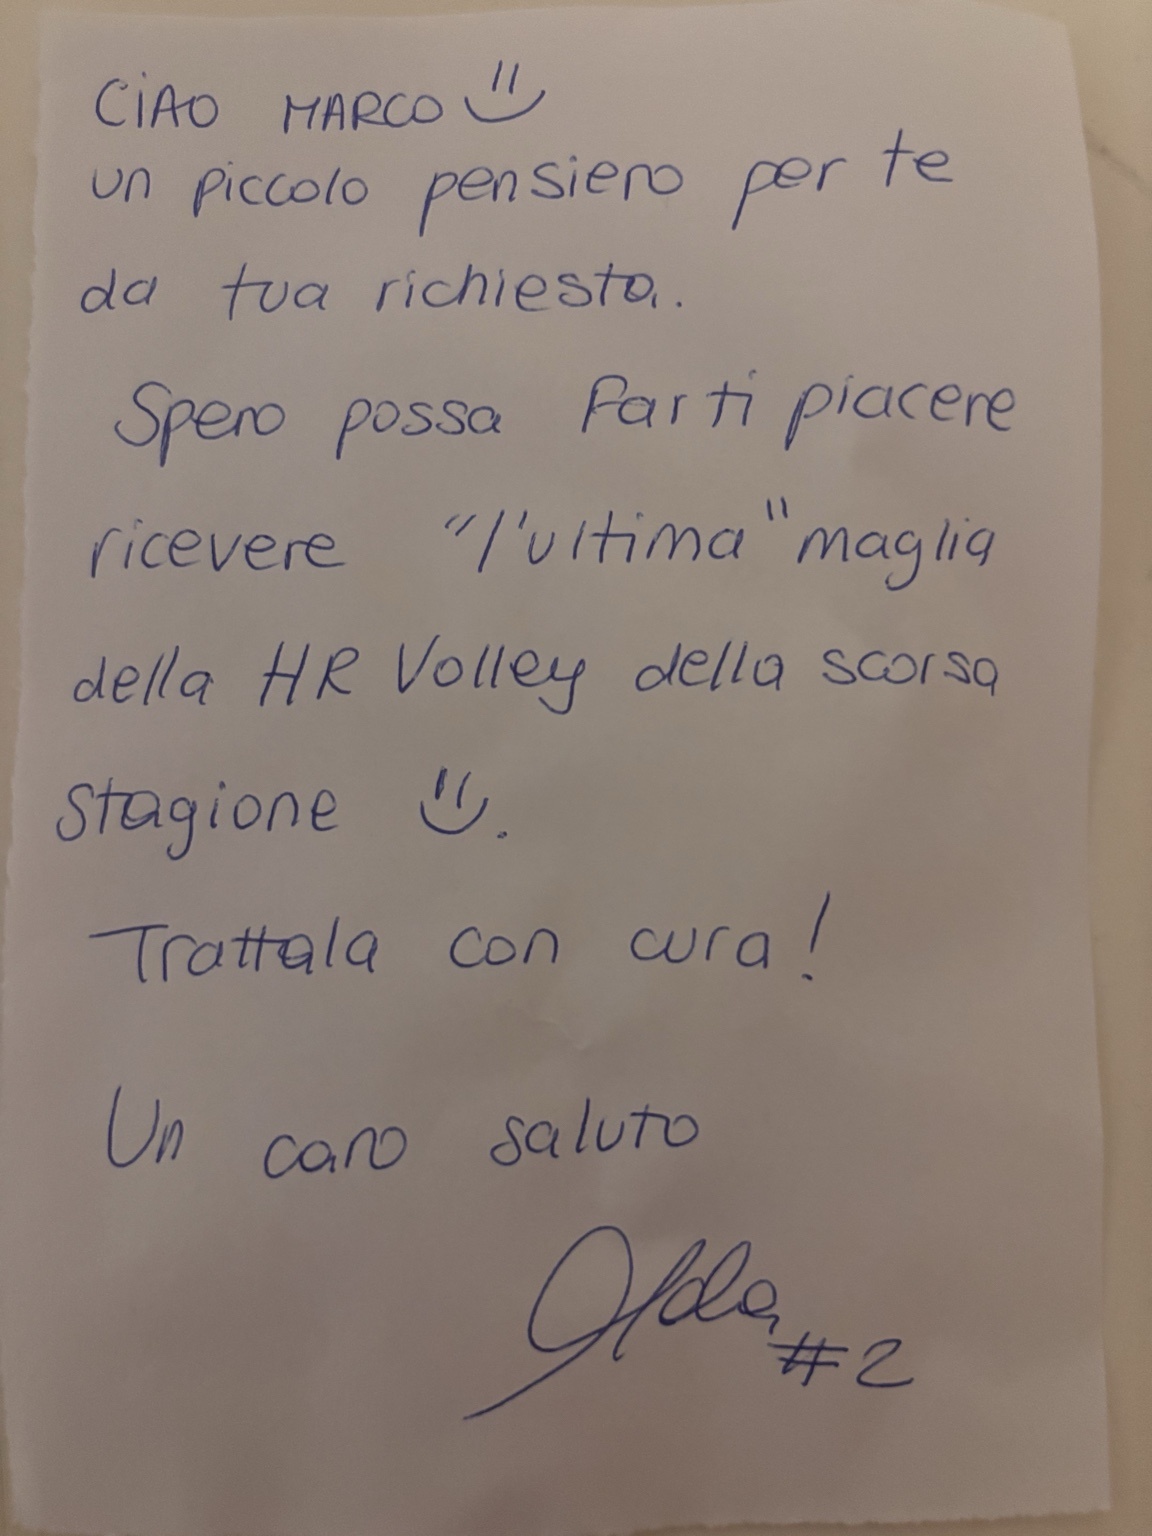 CiAO MARCO
un piccolo pensiero per te
da tua richiesta.
Spero possa farti piacere
ricevere "l'ultima" maglia
della HR Volley della scorsa
stagione .
Trattala con cura!
Un caro saluto
#2